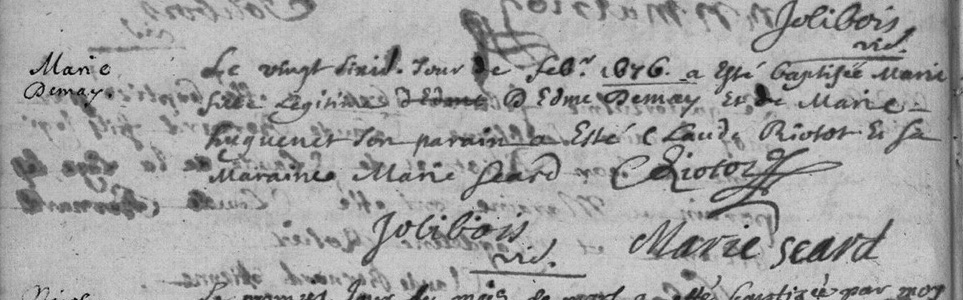 Jolibois
vic.
Marie
Demay.
Le vingt sixie. Jour de febr. 1676. a Esté baptisée Marie
fille Legitime d'Edme D Edme Demay Et de Marie
huguenet son parain a Esté Claude Riotot Et sa
Maraine Marie Seard CRiotot
Jolibois
vic.
Marie Seard
Le premier Jour du mois de mars a esté baptizée par moy